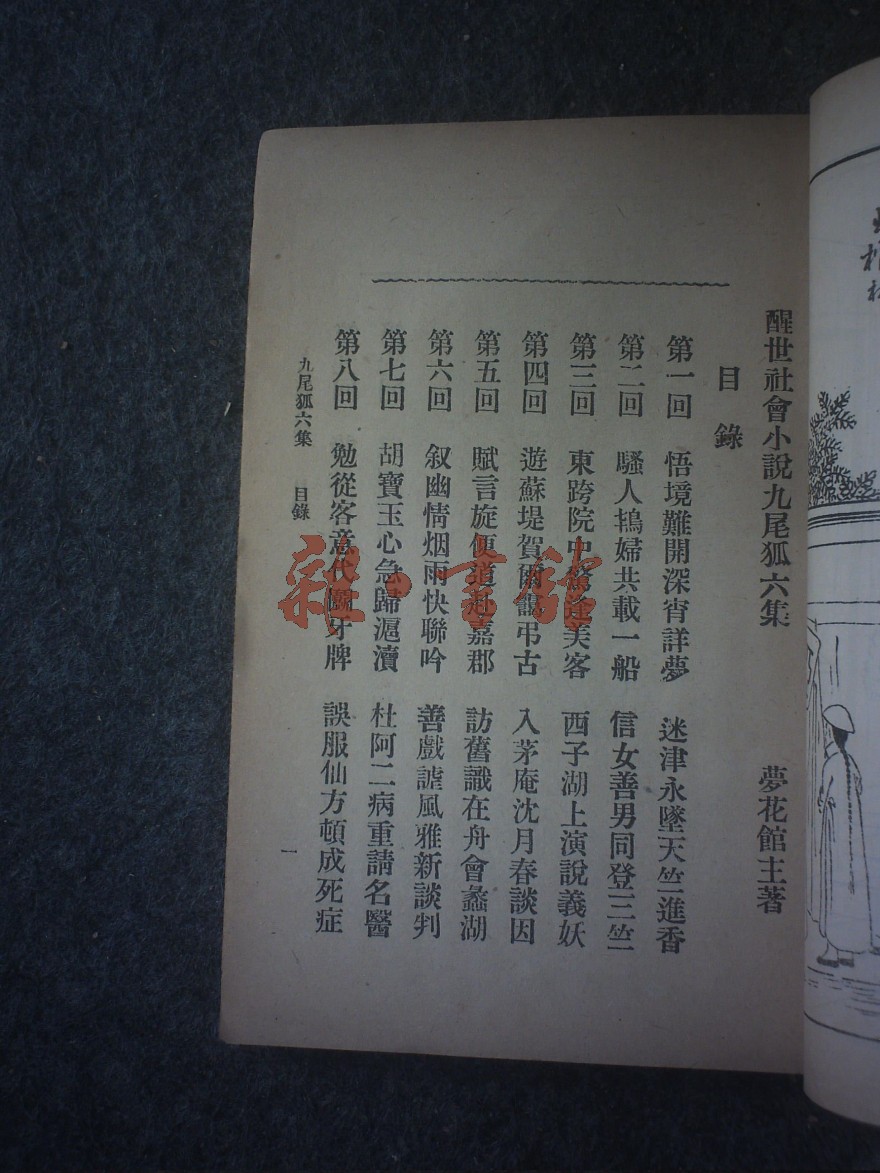 醒世社會小說九尾狐六集　夢花館主著
目錄
第一回　悟境難開深宵詳夢　迷津永墜天竺進香
第二回　騷人鴇婦共載一船　信女善男同登三竺
第三回　東跨院中驚逢美客　西子湖上演說義妖
第四回　遊蘇堤賀爾靄弔古　入茅庵沈月春談因
第五回　賦言旋便道赴嘉郡　訪舊識在舟會蠡湖
第六回　叙幽情烟雨快聯吟　善戲謔風雅新談判
第七回　胡寶玉心急歸滬瀆　杜阿二病重請名醫
第八回　勉從客意代鬭牙牌　誤服仙方頓成死症
九尾狐六集　目錄　一
雜·書館